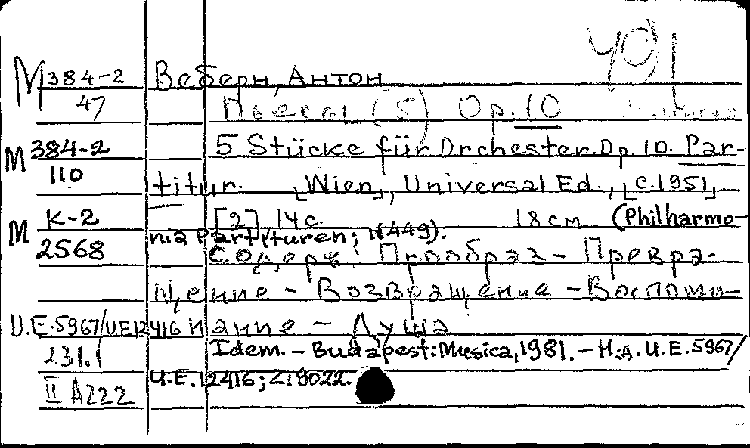 401
M 384-2 Веберн, Антон
47 Пьесы (5) Op. 10
M 384-2 5 Stücke für Orchester. Op. 10. Par-
110 titur. [Wien], Universal Ed., [c. 1951]
M K-2 [2] 14 c. 18 см (Philharmo-
2568 nia Partituren; N449).
Содерж: Прообраз - Превра-
щение - Возвращение - Воспоми-
U.E.5967/UE12416 нание - Душа
231.1 Idem. - Budapest: Musica, 1981. - Н.д. U.E. 5967/
II A222 U.E. 12416; Z19022.